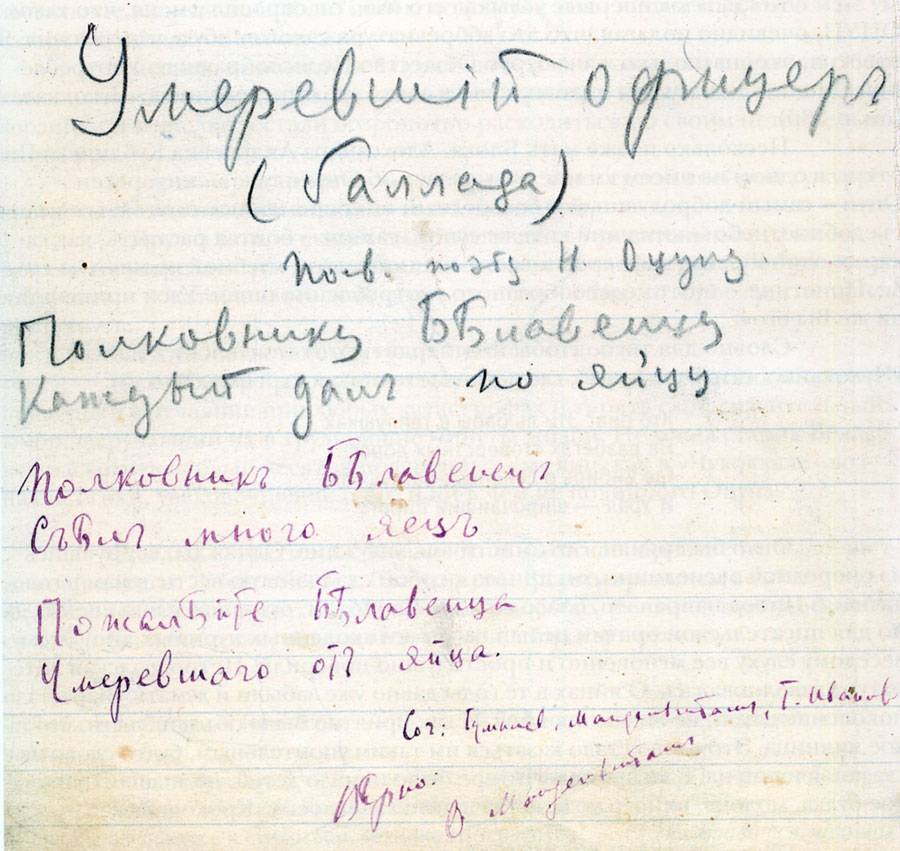 Умеревшій офицеръ
(баллада)
Посв. поэту Н Оцупу
Полковнику Бѣлавенцу
Каждый далъ по яйцу
Полковникъ Бѣлавенецъ
Съѣлъ много яецъ
Пожалѣйте Бѣлавенца
Умеревшаго отъ яйца.
Соч: Гумилев Мандельштамъ Г. Иванов
Верно:
О Мандельштам